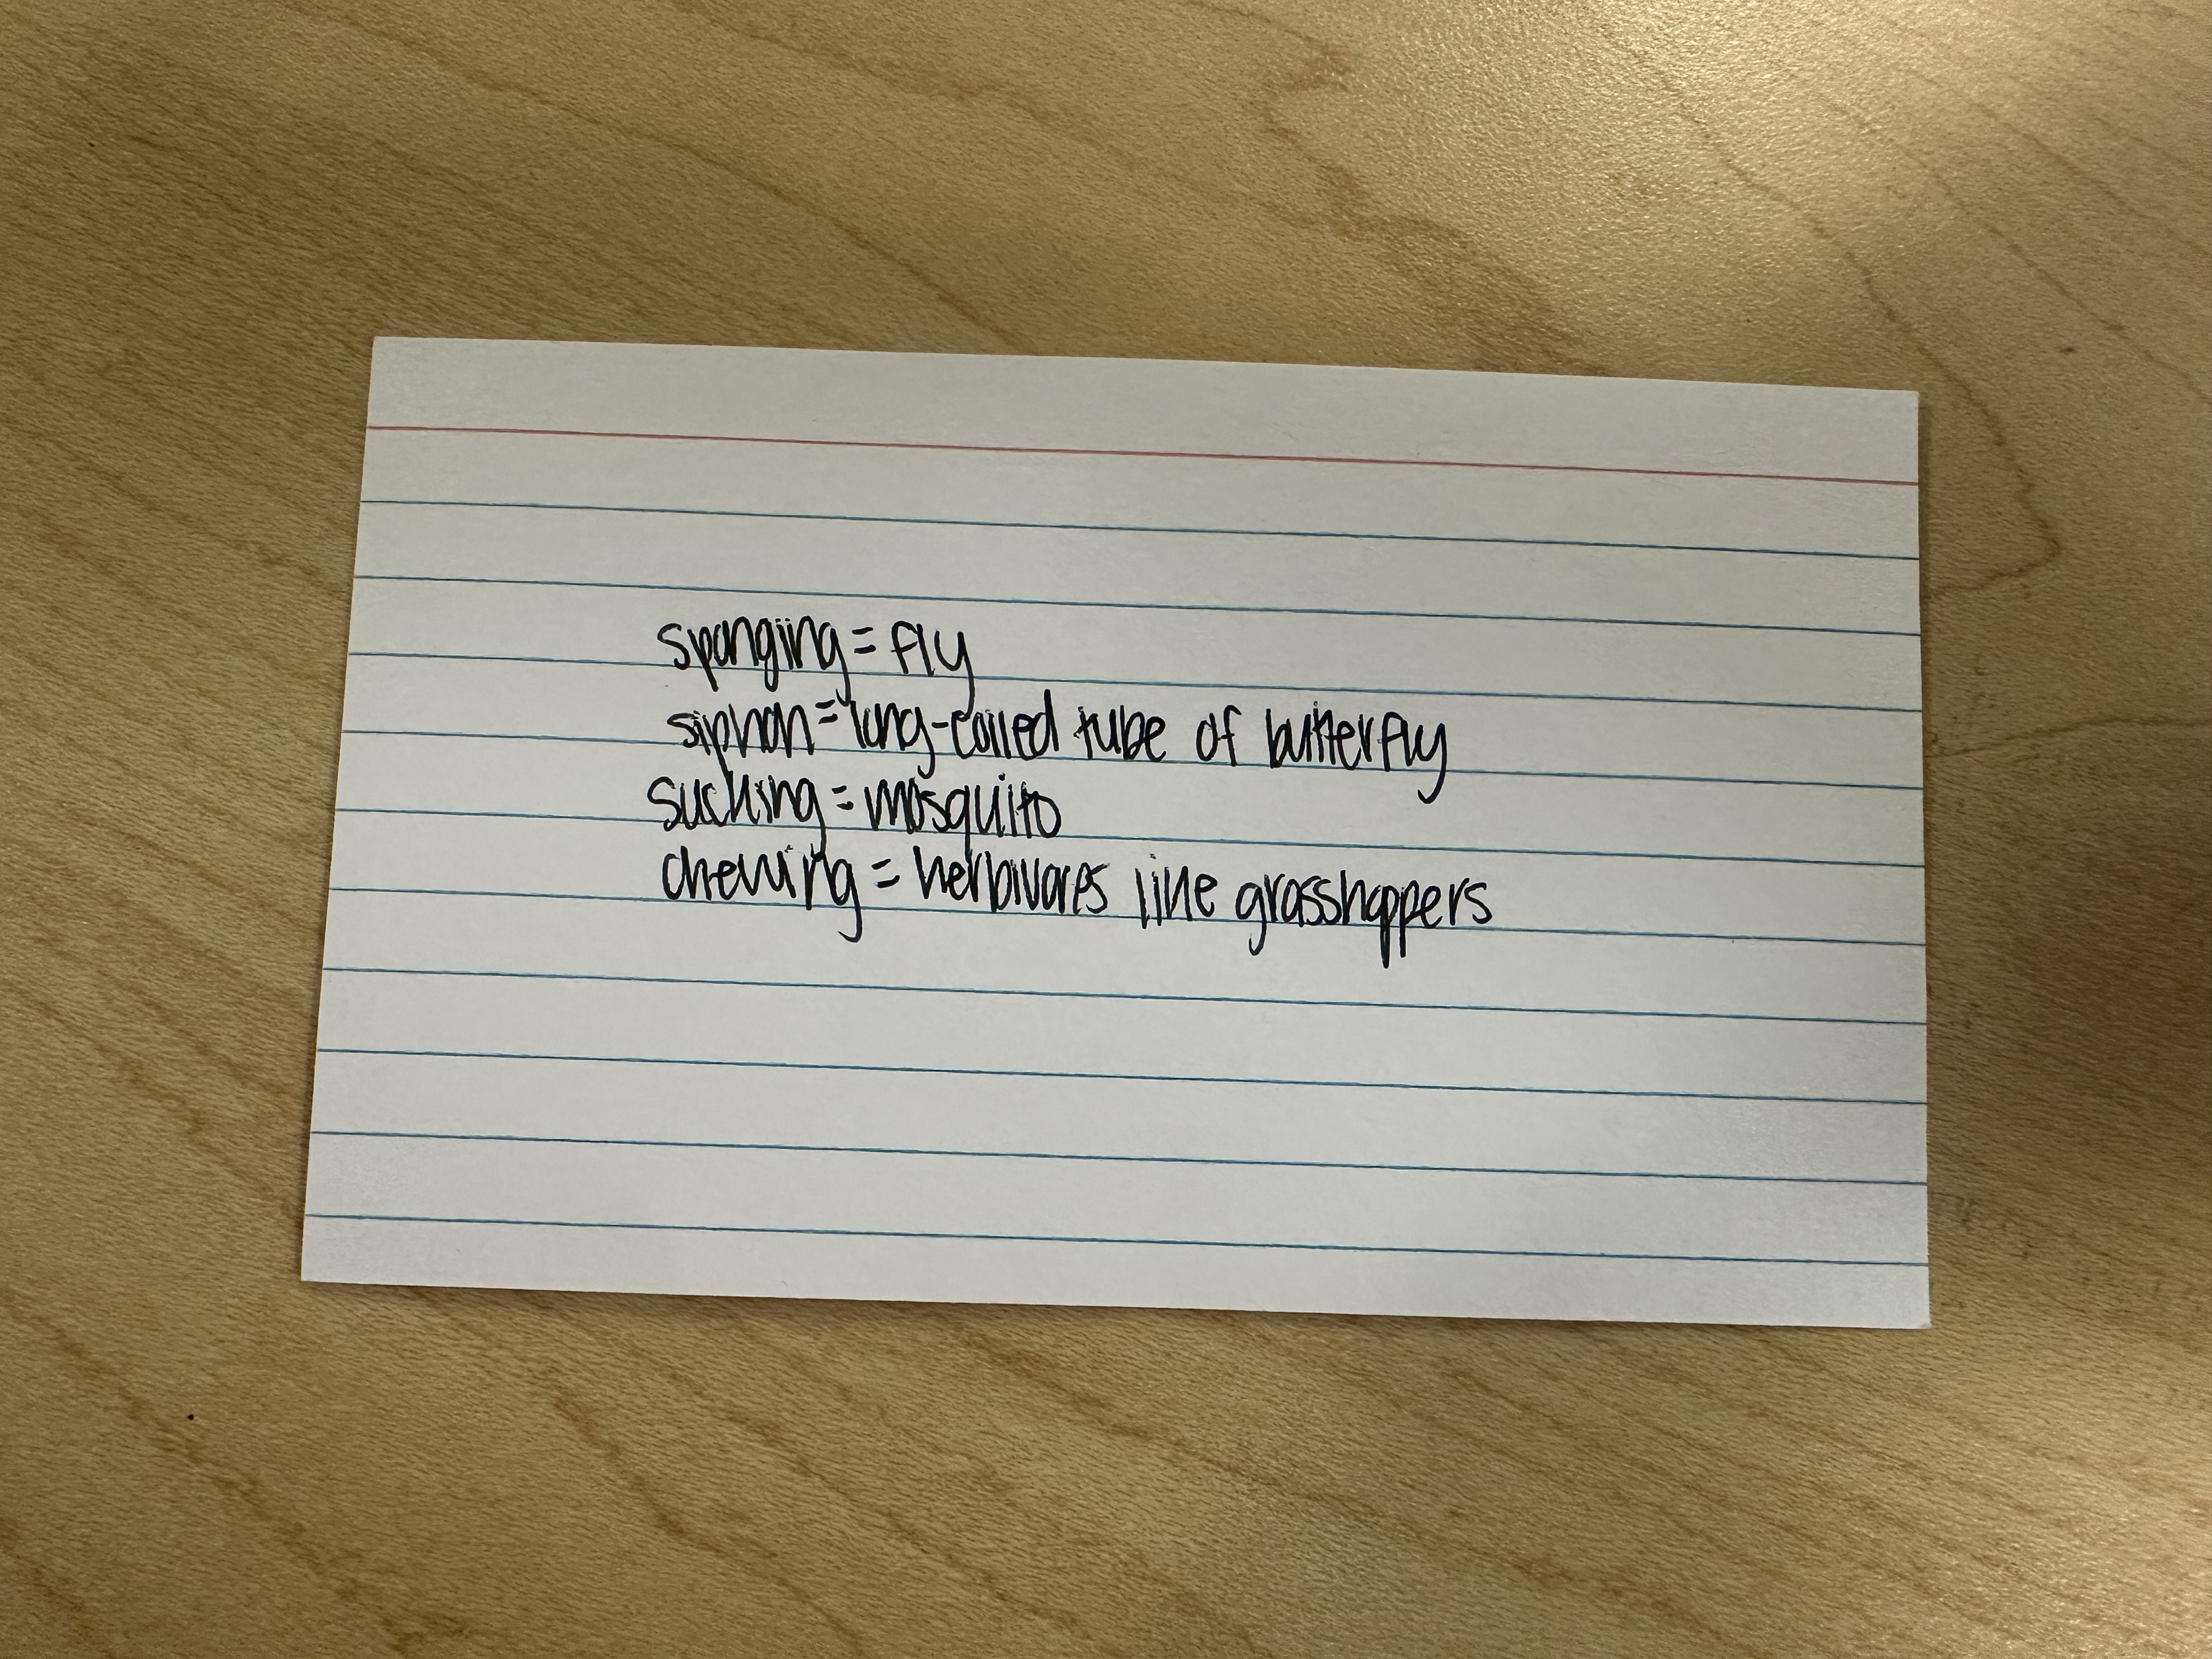 sponging = fly
siphon = long-coiled tube of butterfly
sucking = mosquito
chewing = herbivores like grasshoppers